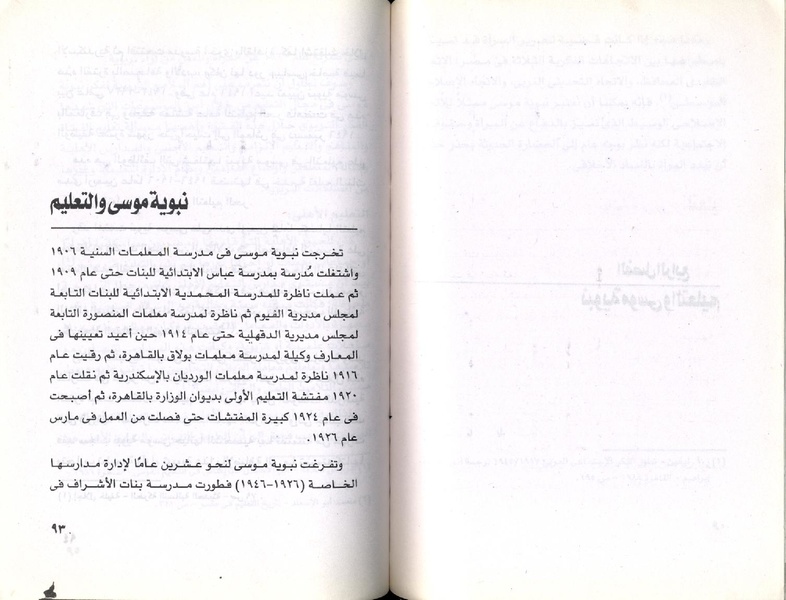 نبوية موسى والتعليم
تخرجت نبوية موسى فى مدرسة المعلمات السنية ١٩٠٦
واشتغلت مُدرسة بمدرسة عباس الابتدائية للبنات حتى عام ١٩٠٩
ثم عملت ناظرة للمدرسة المحمدية الابتدائية للبنات التابعة
لمجلس مديرية الفيوم ثم ناظرة لمدرسة معلمات المنصورة التابعة
لمجلس مديرية الدقهلية حتى عام ١٩١٤ حين أعيد تعيينها فى
المعارف وكيلة لمدرسة معلمات بولاق بالقاهرة، ثم رقيت عام
١٩١٦ ناظرة لمدرسة معلمات الورديان بالإسكندرية ثم نقلت عام
١٩٢٠ مفتشة التعليم الأولى بديوان الوزارة بالقاهرة، ثم أصبحت
فى عام ١٩٢٤ كبيرة المفتشات حتى فصلت من العمل فى مارس
عام ١٩٢٦.
وتفرغت نبوية موسى لنحو عشرين عامًا لإدارة مدارسها
الخاصة (١٩٢٦-١٩٤٦) فطورت مدرسة بنات الأشراف فى
٩٣